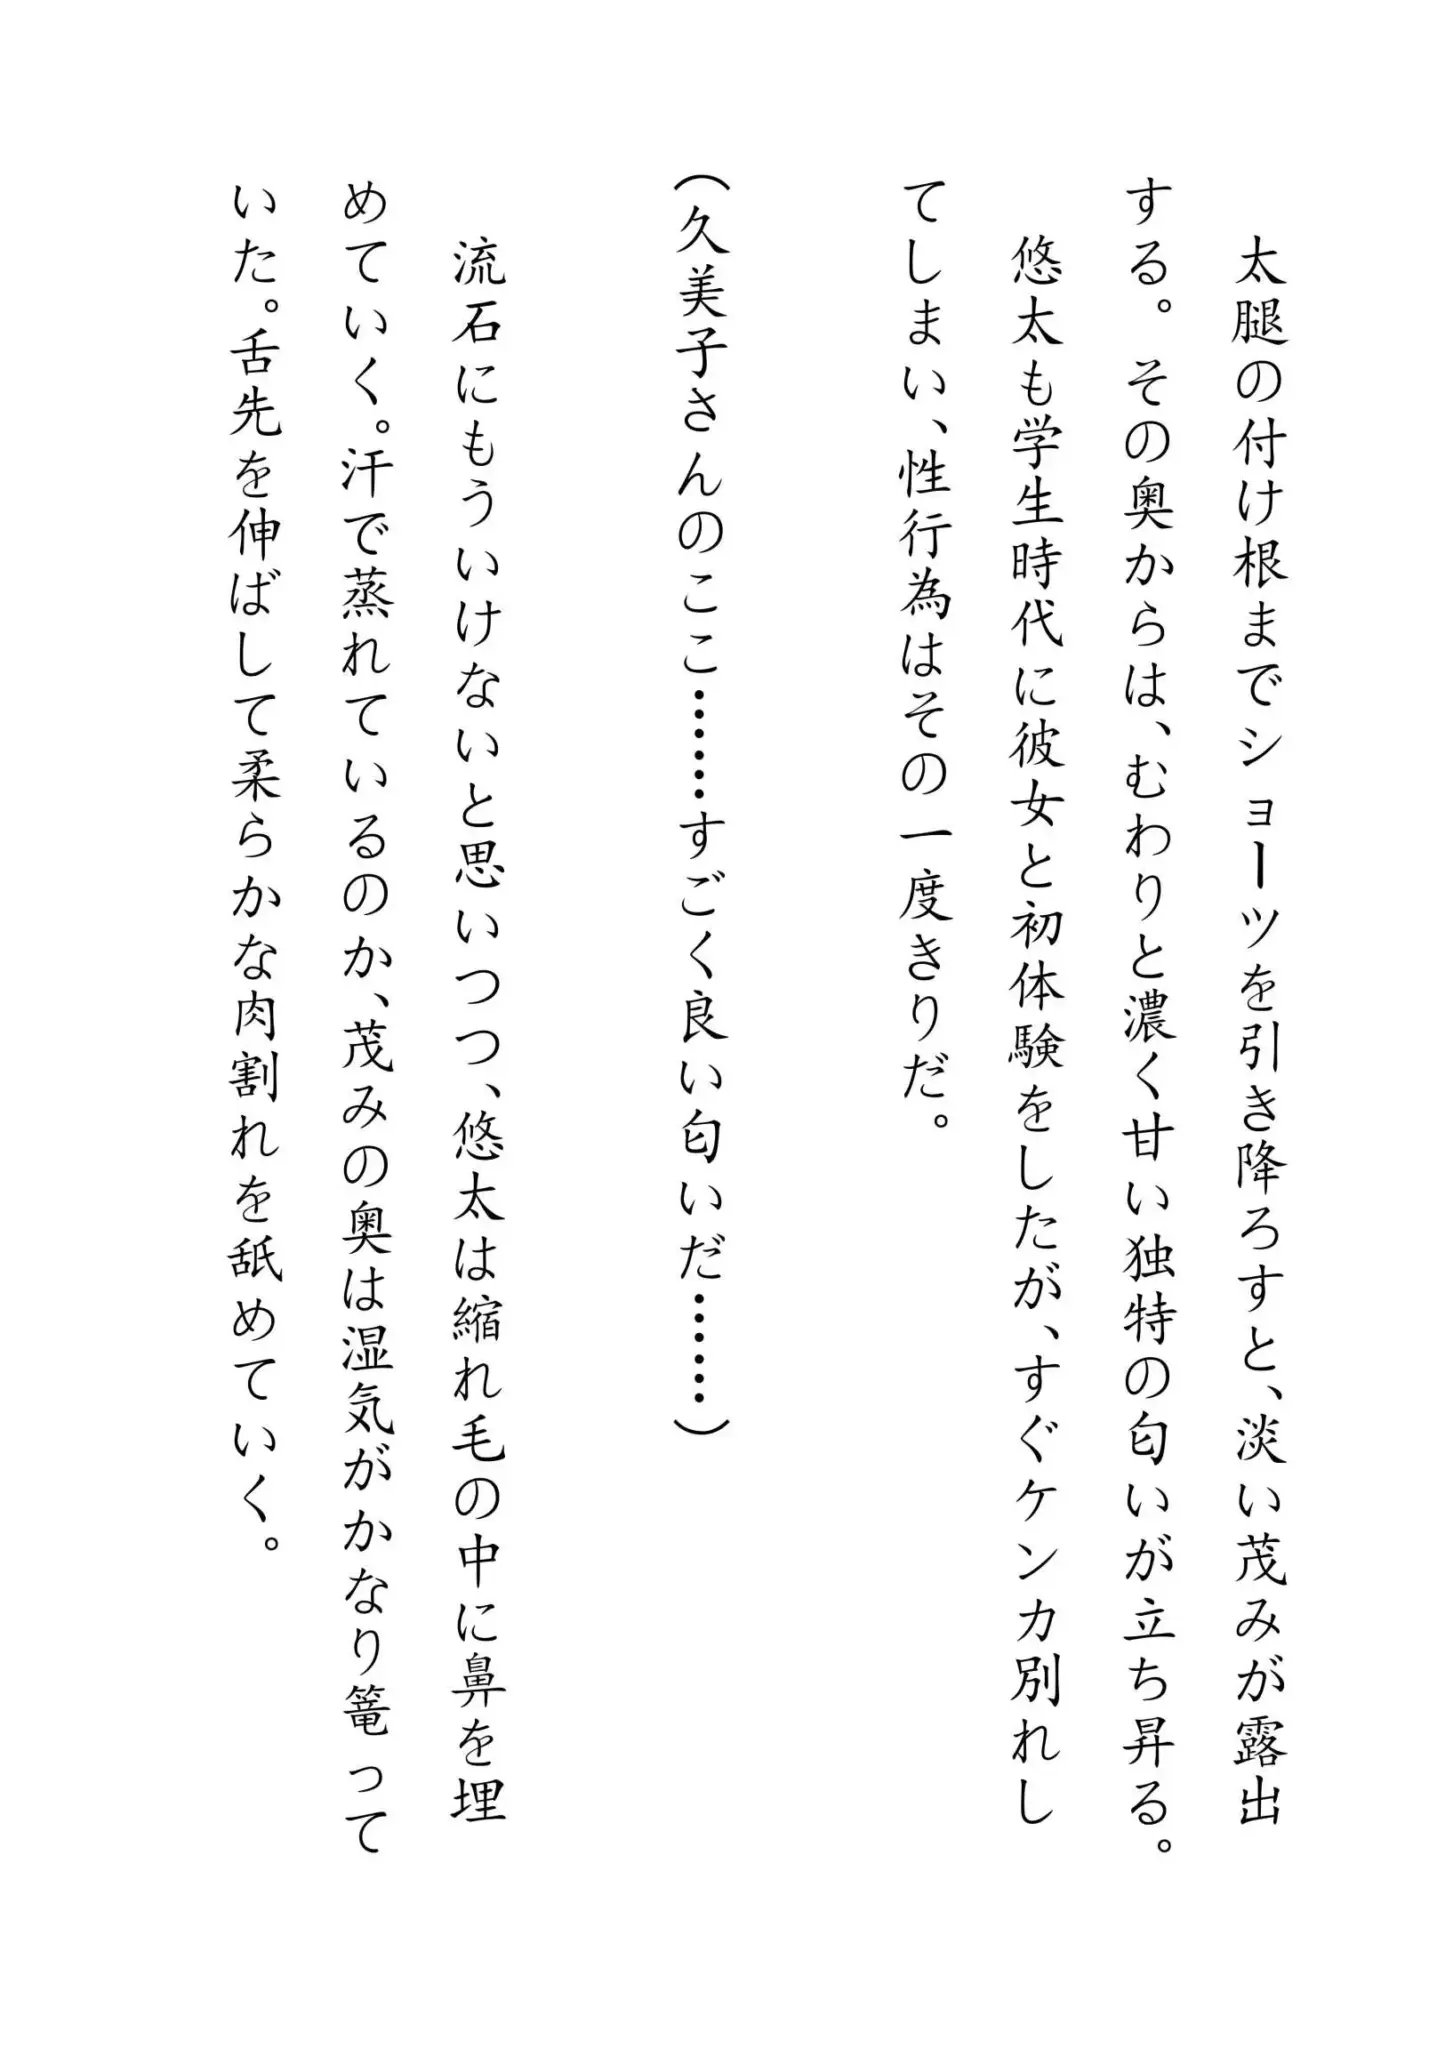 太腿の付け根までショーツを引き降ろすと、淡い茂みが露出
する。その奥からは、むわりと濃く甘い独特の匂いが立ち昇る。
悠太も学生時代に彼女と初体験をしたが、すぐケンカ別れし
てしまい、性行為はその一度きりだ。
（久美子さんのここ……すごく良い匂いだ……）
流石にもういけないと思いつつ、悠太は縮れ毛の中に鼻を埋
めていく。汗で蒸れているのか、茂みの奥は湿気がかなり篭って
いた。舌先を伸ばして柔らかな肉割れを舐めていく。